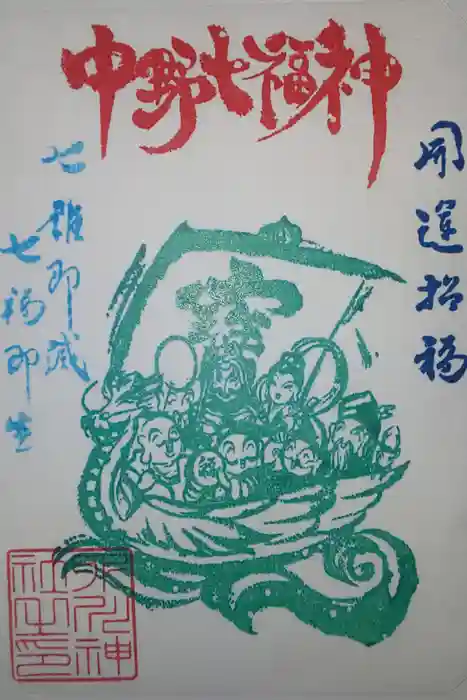 中野七福神
開運招福
七難即滅
七福即生
氷川神
社之印